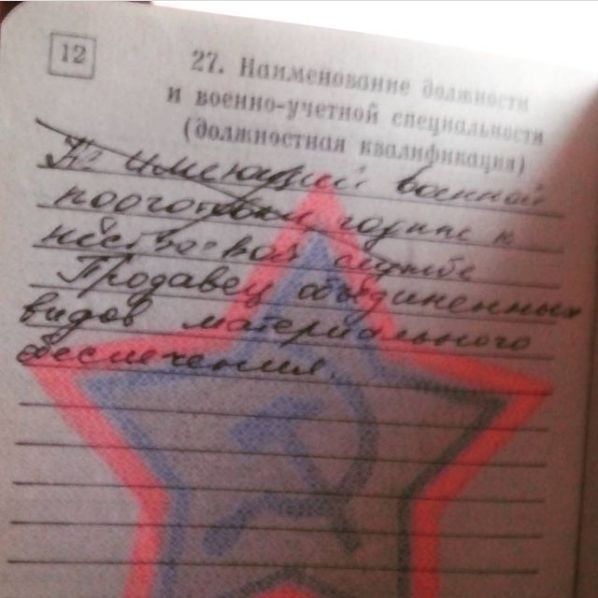 12
27. Наименование должности
и военно-учетной специальности
(должностная квалификация)
Не имеющий военной
подготовки годные к
нестроевой службе
Продавец объединенных
видов материального
обеспечения.